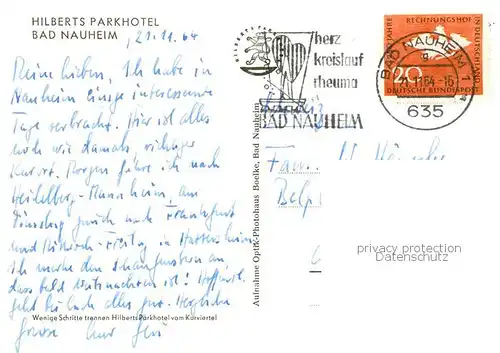 HILBERTS PARKHOTEL
BAD NAUHEIM
21.11.64
Meine Lieben, Ich habe in
Nauheim einige interessante
Tage verbracht. Hier ist alles
noch wie damals, richtiger
Kurort. Morgen fahre ich nach
Heidelberg - Mannheim, am
Dienstag zurück nach Frankfurt
und Mittwoch - Freitag in
Ich
dass bald Weihnachten ist! Hoffentl.
geht bei Euch alles gut. Herzliche
Grüsse Euer
Wenige Schritte trennen Hilberts Parkhotel vom Kurviertel
Aufnahme Optik-Photohaus Boelke, Bad Nauheim
HILBERTS PARK
herz
kreislauf
rheuma
BAD NAUHEIM
JAHRE RECHNUNGSHOF IN DEUTSCHLAND
20
DEUTSCHE BUNDESPOST
BAD NAUHEIM 1
21.11.64-16
635
Fam.
privacy protection
oldthing.de